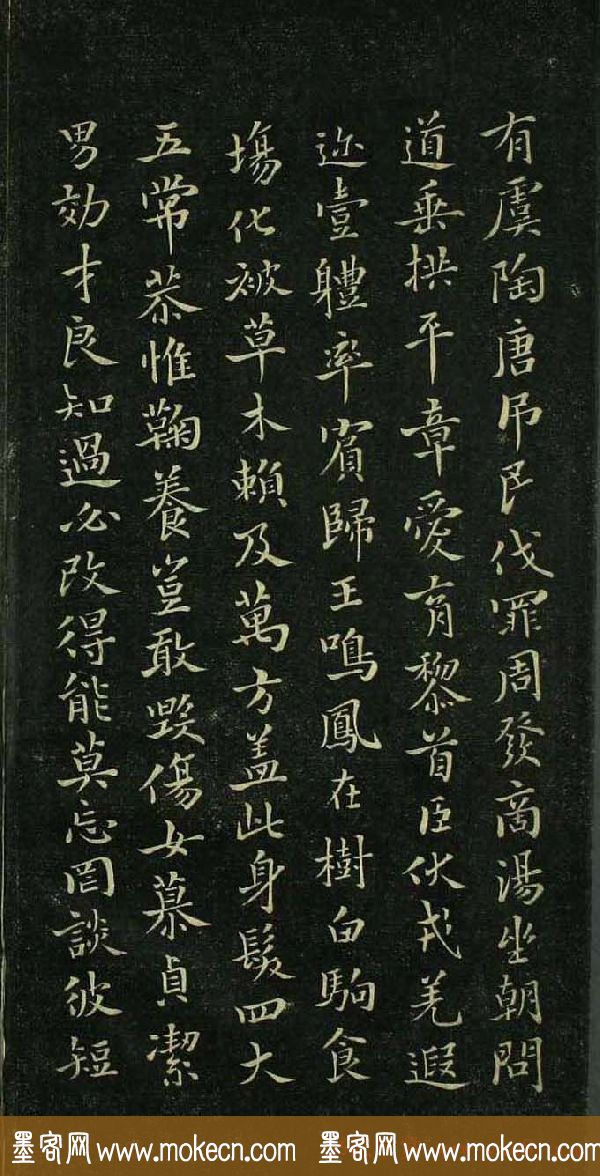 有虞陶唐吊民伐罪周發商湯坐朝問
道垂拱平章愛育黎首臣伏戎羌遐
迩壹軆率賓歸王鳴鳳在樹白駒食
場化被草木賴及萬方盖此身髮四大
五常恭惟鞠養豈敢毀傷女慕貞潔
男効才良知過必改得能莫忘罔談彼短
墨客网 www.mokecn.com 墨客网 www.mokecn.com